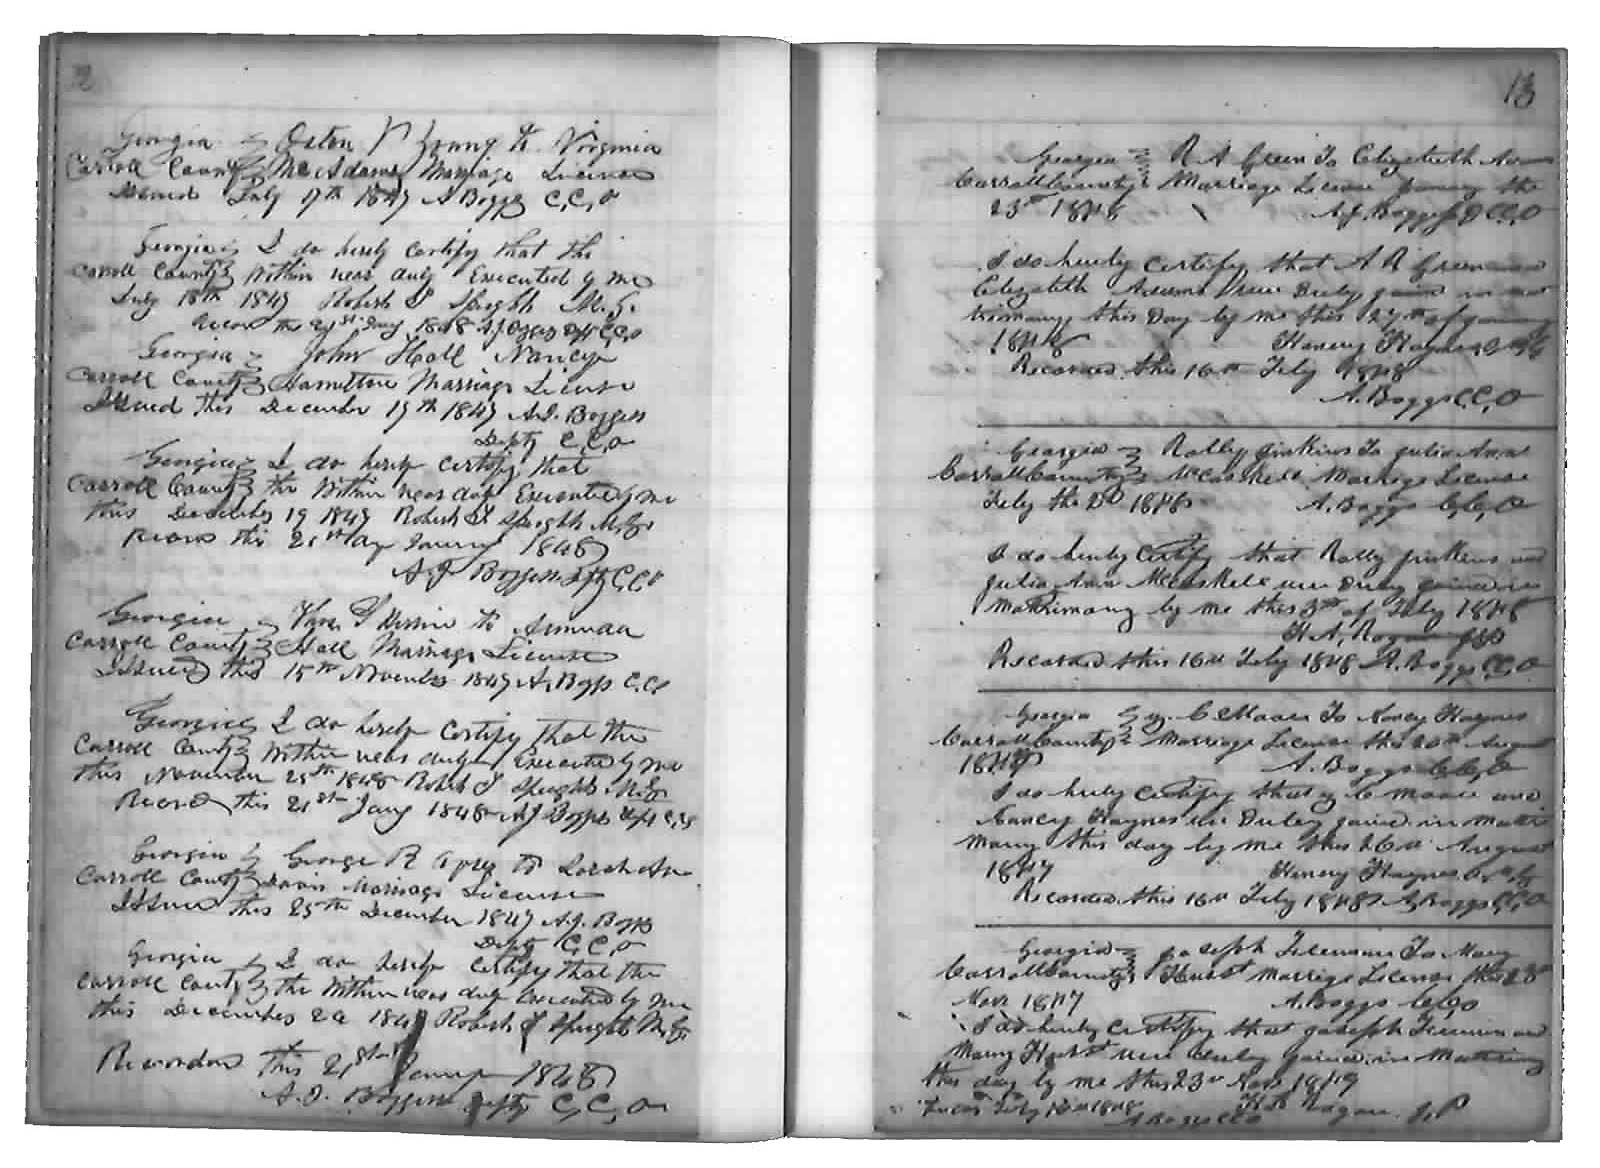 2
Georgia Oston P Young to Virginia
Carroll County McAdams Marriage License
Issued July 17th 1847 A Boggs C,C,O
Georgia I do herely certify that the
Carroll County Within was duly Executed by me
July 18th 1847 Robert S Speight M.G.
Record this 21st Jany 1848 AJ Boggs Dpt C,C,O
Georgia John Hall Nancy
Carroll County Hamilton Marriage License
Issued this December 19th 1847 A.J. Boggess
Depty C,C,O
Georgia I do herely certify that
Carroll County the Within was duly Executed by me
this December 19 1847 Robert S Speight M,G,
Record this 21st January 1848
A.J. Boggess Dpty C,C,O
Georgia to
Carroll County Hall Marriage License
Issued this 15th November 1847 A, Boggs C.C,
Georgia I do herely certify that the
Carroll County Within was duly Executed by me
this November 25th 1848 Robert S Speight M.G.
Record this 21st Jany 1848 AJ Boggs Dpt C,C,O
Georgia George R to Sarah Ann
Carroll County Davis Marriage License
Issued this 25th December 1847 A.J. Boggs
Depty C,C,O
Georgia I do herely Certify that the
Carroll County the Within was duly executed by me
this December 1847 Robert S Speight M.G.
Recorded this 21st January 1848
A.J. Boggess Depty C,C,O
13
Georgia R A Green To Elizabeth
Carroll County Marriage License January the
23rd 1848 A.J. Boggess D C,C,O
I do herely certify that A R Green and
Elizabeth ware Duly joined in mat
trimony this Day by me this 27th of January
1848 Henery Haynes
Recorded this 16th Feby 1848
A. Boggs C.C,O
Georgia Rolly Jinkins To Julia Ann
Carroll County McCaskell Marriage License
Feby the 2D 1848 A. Boggs C,C,O
I do herely certify that Rolly Jinkins and
Julia Ann McCaskell ware Duly joined in
Matrimony by me this 3rd of Feby 1848
H A, Rogan JP
Recorded this 16th Feby 1848 A. Boggs C,C,O
Georgia C Moore To Nancy Haynes
Carroll County Marriage License this 20th August
1847 A. Boggs C,C,O
I do herely certify that C Moore and
Nancy Haynes ware Duley joined in Matri
mony this day by me this 26th August
1847 Henery Haynes
Recorded this 16th Feby 1848 A, Boggs C,C,O
Georgia Joseph To Mary
Carroll County Hurst Marriage License this 23
Novr 1847 A. Boggs C,C,O
I do herely certify that Joseph and
Mary Hurst ware duley joined in Matrimony
this day by me this 23rd Novr 1847
Feby 16th 1848 H A Rogan J,P
A Boggs CCO